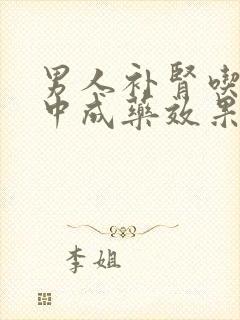 男人补肾喫
中成藥效果
李姐